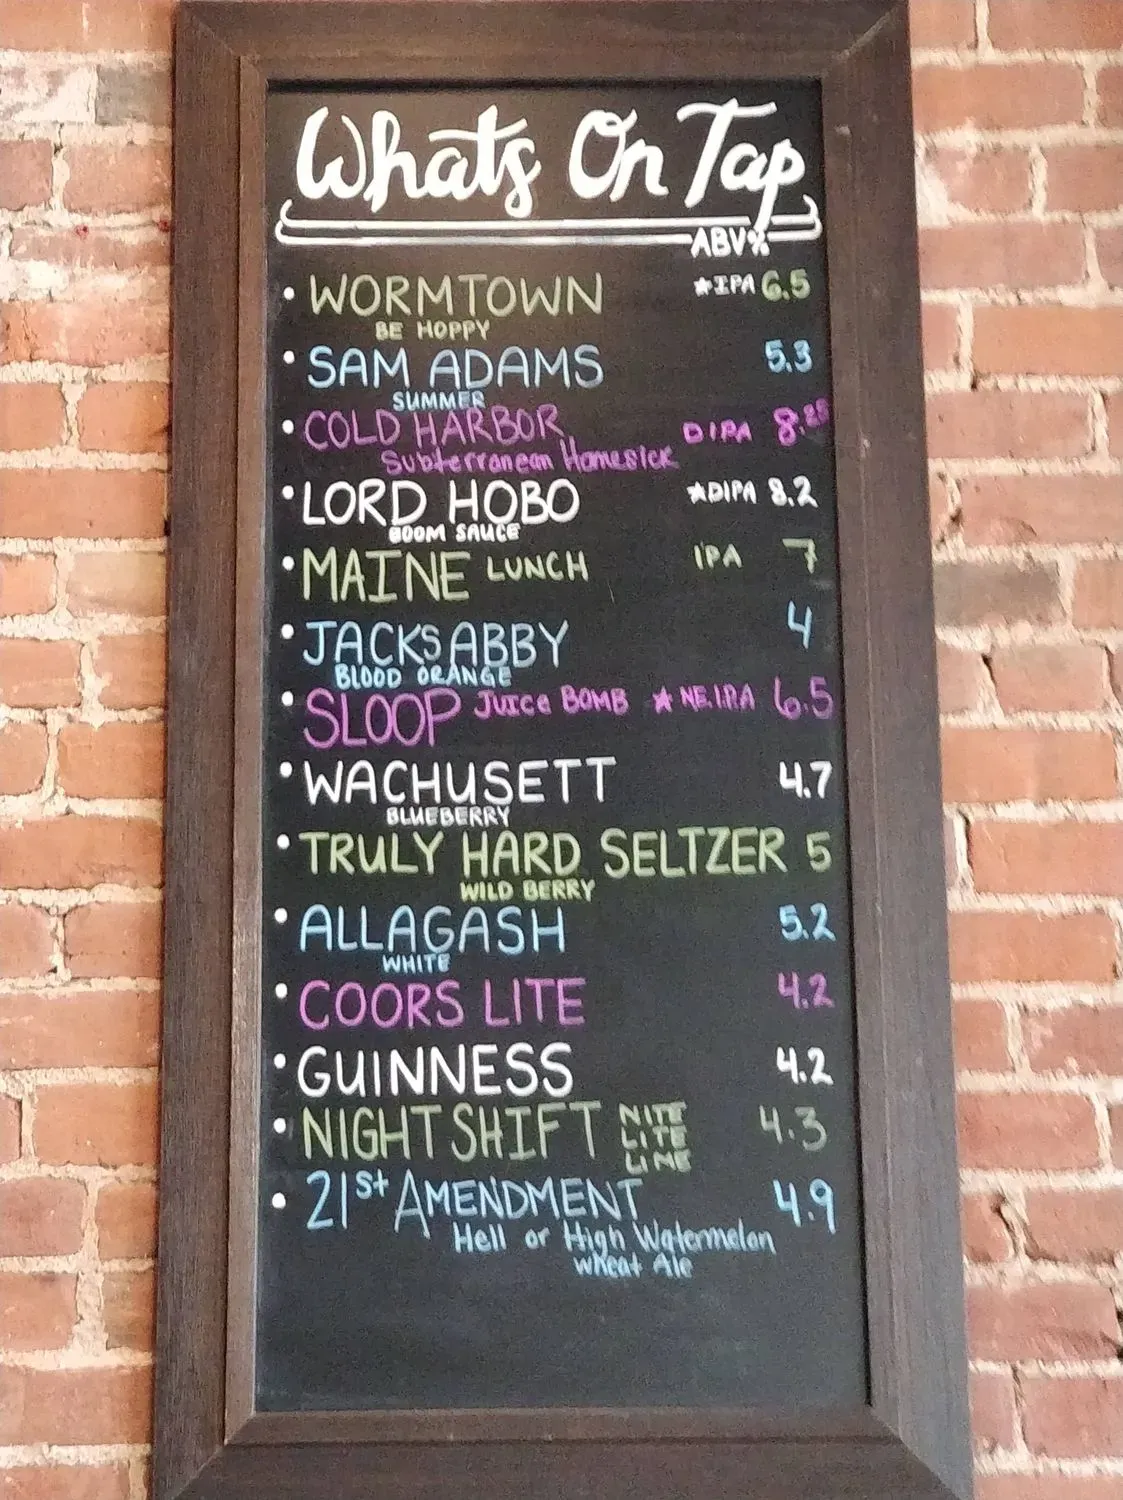 Whats On Tap
ABV%
• WORMTOWN ★IPA 6.5
BE HOPPY
• SAM ADAMS 5.3
SUMMER
• COLD HARBOR DIPA 8.25
Subterranean Homesick
• LORD HOBO ★DIPA 8.2
BOOM SAUCE
• MAINE LUNCH IPA 7
• JACKS ABBY 4
BLOOD ORANGE
• SLOOP JUICE BOMB ★ NE.IPA 6.5
• WACHUSETT 4.7
BLUEBERRY
• TRULY HARD SELTZER 5
WILD BERRY
• ALLAGASH 5.2
WHITE
• COORS LITE 4.2
• GUINNESS 4.2
• NIGHT SHIFT NITE 4.3
LITE
LIME
• 21st AMENDMENT 4.9
Hell or High Watermelon
Wheat Ale